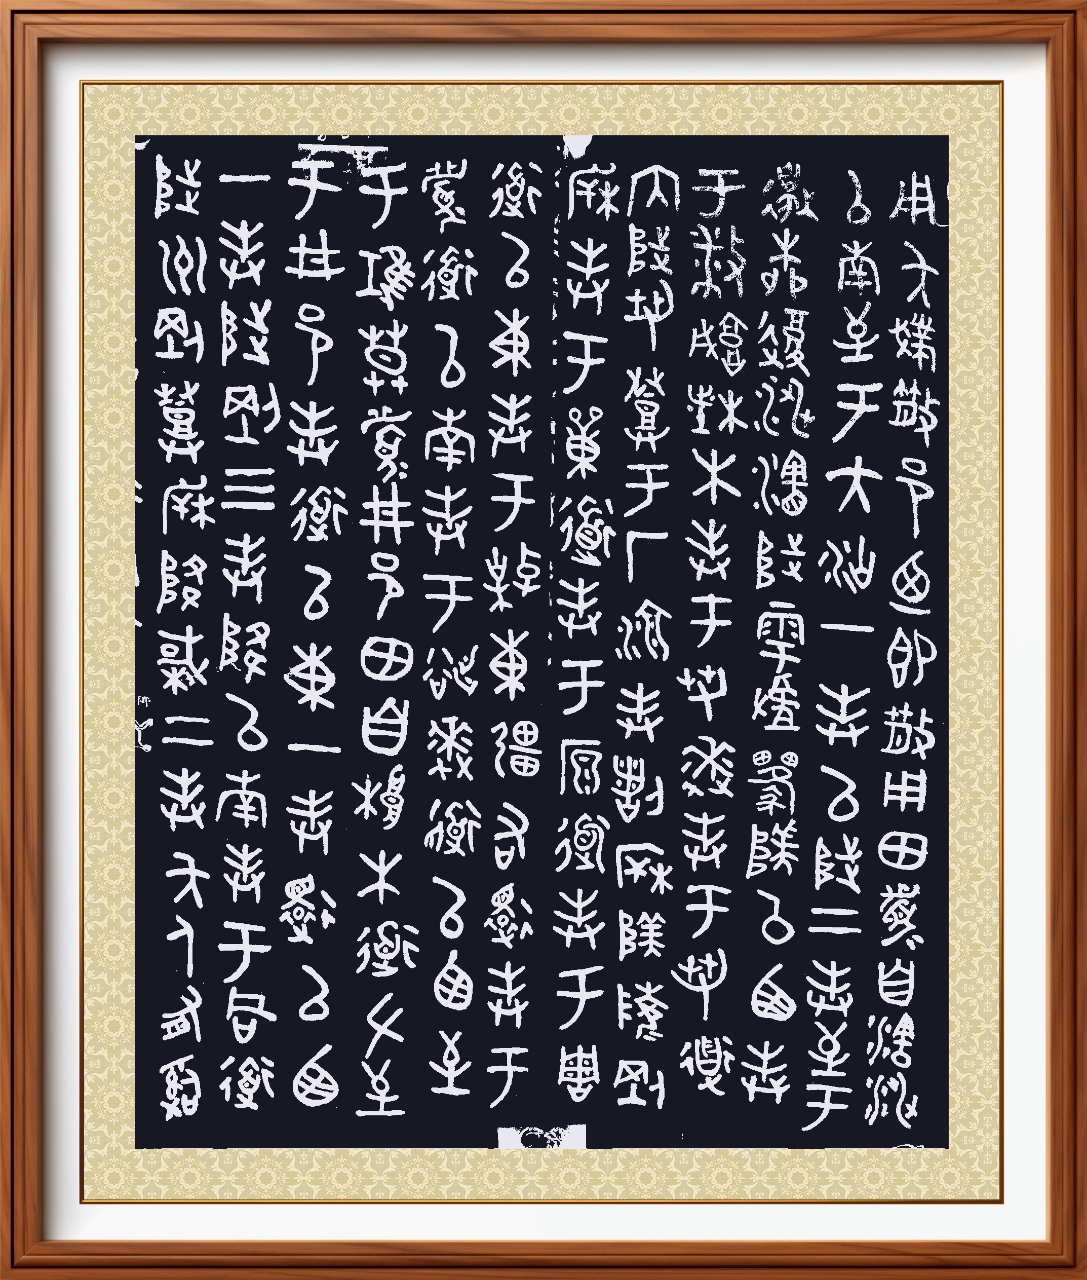 用夨撲散邑廼即散用田眉自瀗涉
以南至于大沽一封以陟二封至于
邊柳復涉瀗陟雩𨽿陕以西封
于敝城楮木封于芻逨封于芻道
内陟芻登于厂湶封諸𣏟陕陵剛
𣏟封于單道封于原道封于周
道以東封于東疆右還封于
眉道以南封于逨道以西至
于堆莫眉井邑田自根木道左至
于井邑封道以東一封還以西一封
陟剛三封降以南封于同道
陟州剛登𣏟降棫二封夨人有𤔲